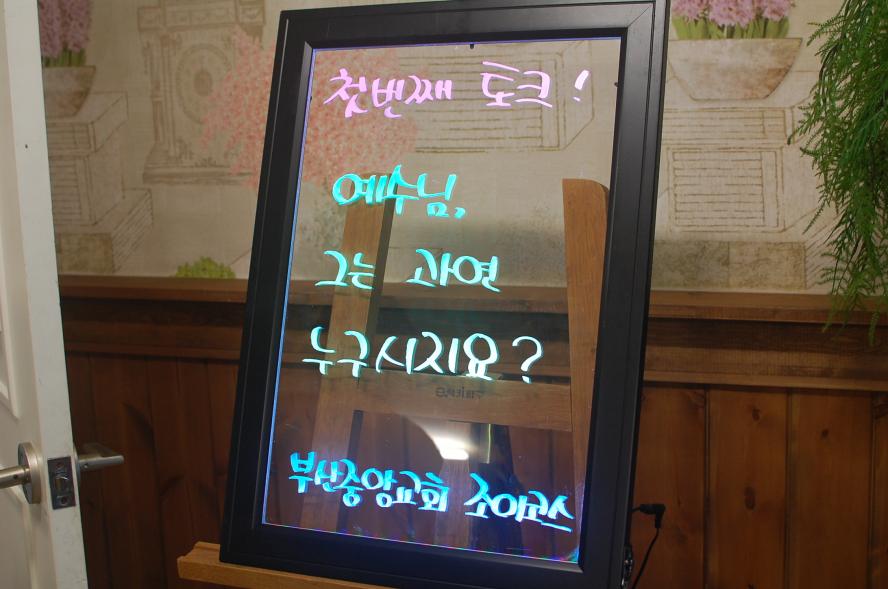 첫번째 토크!
예수님,
그는 과연
누구시지요?
부산중앙교회 조이코스